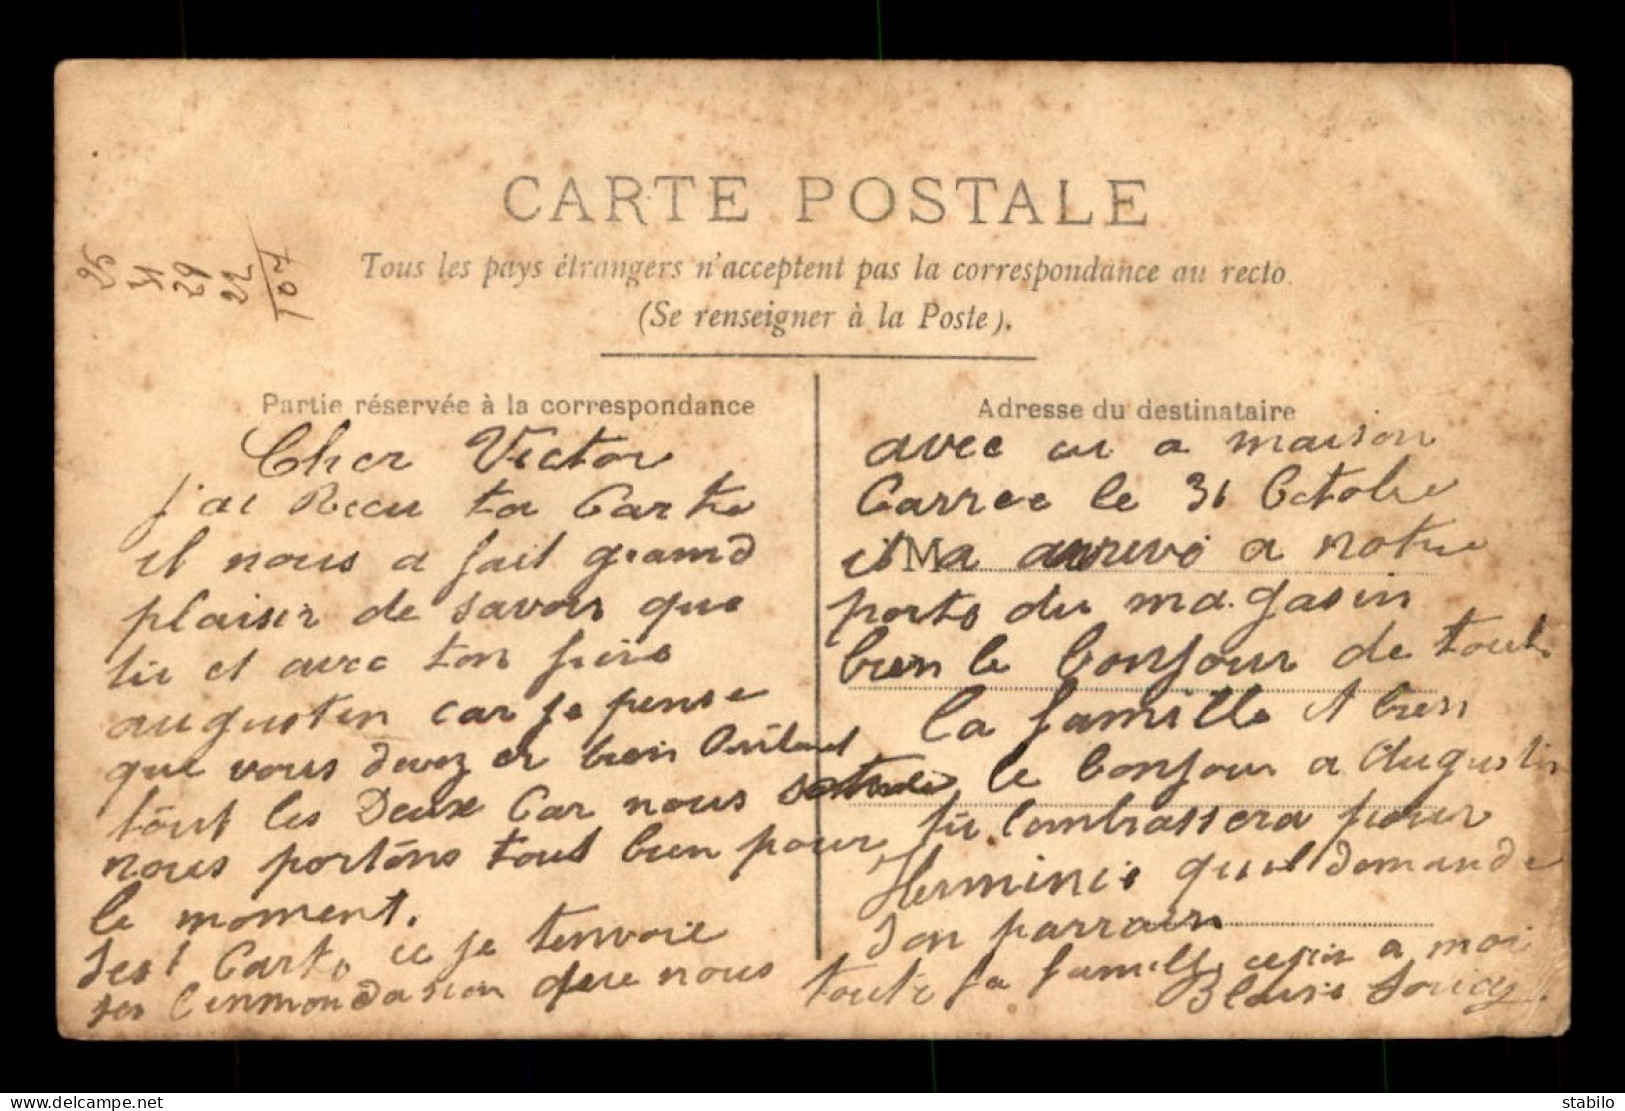 CARTE POSTALE
Tous les pays étrangers n'acceptent pas la correspondance au recto.
(Se renseigner à la Poste).
26
29
22
107
Partie réservée à la correspondance
Cher Victor
j'ai Recu ta Carte
il nous a fait grand
plaisir de savoir que
tu et avec ton frere
augustin car je pense
que vous devez er bien
tout les Deux Car nous
nous portons tout bien pour
le moment.
Carte ce je tenvoie
que nous
Adresse du destinataire
avec a maison
Carree le 31 Octobre
il M a arrivé a notre
porte du magasin
bien le bonjour de toute
la famille et bien
le bonjour a Augustin
tu lembrassera pour
Herminie quil demande
son parrain
toute la famille a moi
Blaise
stabilo